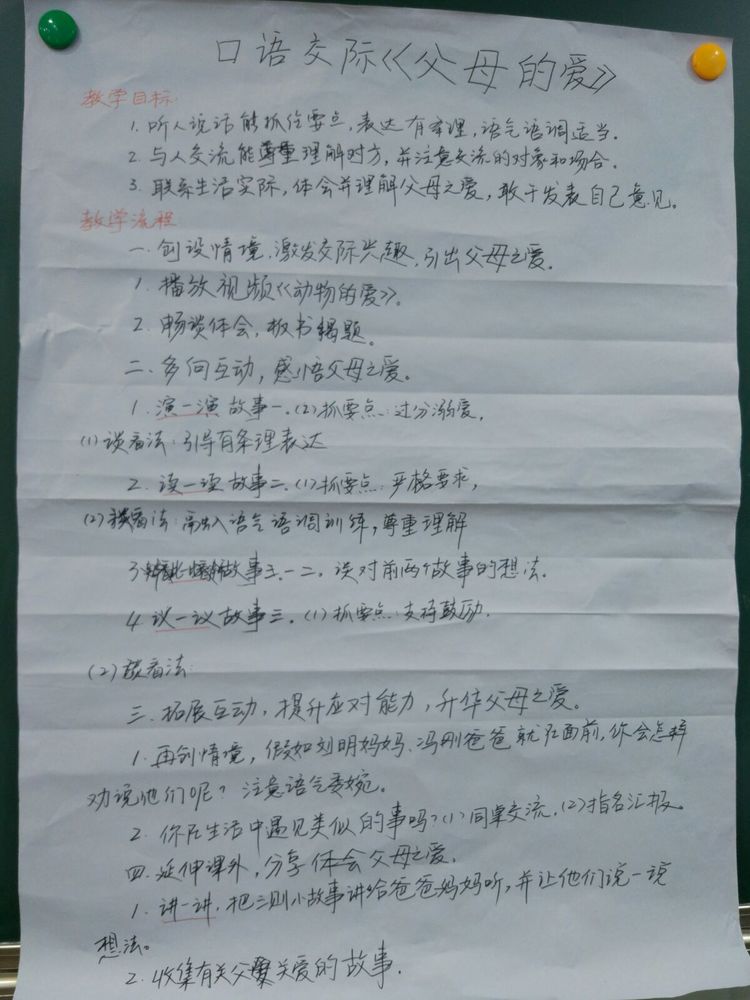 口语交际《父母的爱》
教学目标
1. 听人说话能抓住要点,表达有条理,语气语调适当.
2. 与人交流能尊重理解对方,并注意交流的对象和场合.
3. 联系生活实际,体会并理解父母之爱,敢于发表自己意见。
教学流程
一、创设情境,激发交际兴趣,引出父母之爱.
1. 播放视频《动物的爱》.
2. 畅谈体会,板书揭题.
二、多向互动,感悟父母之爱。
1. 演一演故事一.(2)抓要点:过分溺爱,
(1)谈看法:引导有条理表达
2. 读一读故事二.(1)抓要点:严格要求,
(2)谈看法:融入语气语调训练,尊重理解
3. 故事一二.谈对前两个故事的想法.
4. 议一议故事三.(1)抓要点:支持鼓励.
(2)谈看法:
三.拓展互动,提升应对能力,升华父母之爱。
1. 再创情境,假如刘明妈妈、冯刚爸爸就在面前,你会怎样
劝说他们呢?注意语气委婉。
2. 你在生活中遇见类似的事吗?(1)同桌交流,(2)指名汇报。
四.延伸课外,分享体会父母之爱.
1. 讲一讲.把三则小故事讲给爸爸妈妈听,并让他们说一说
想法。
2. 收集有关父母关爱的故事.